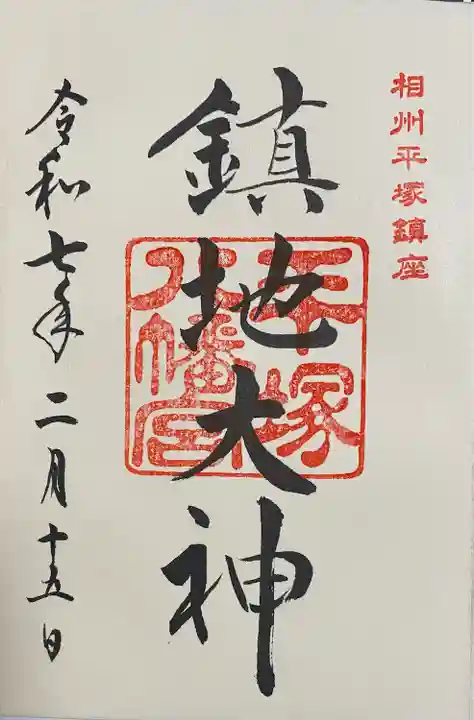 相州平塚鎮座
鎮地大神
平塚
八幡宮
令和七年二月十五日